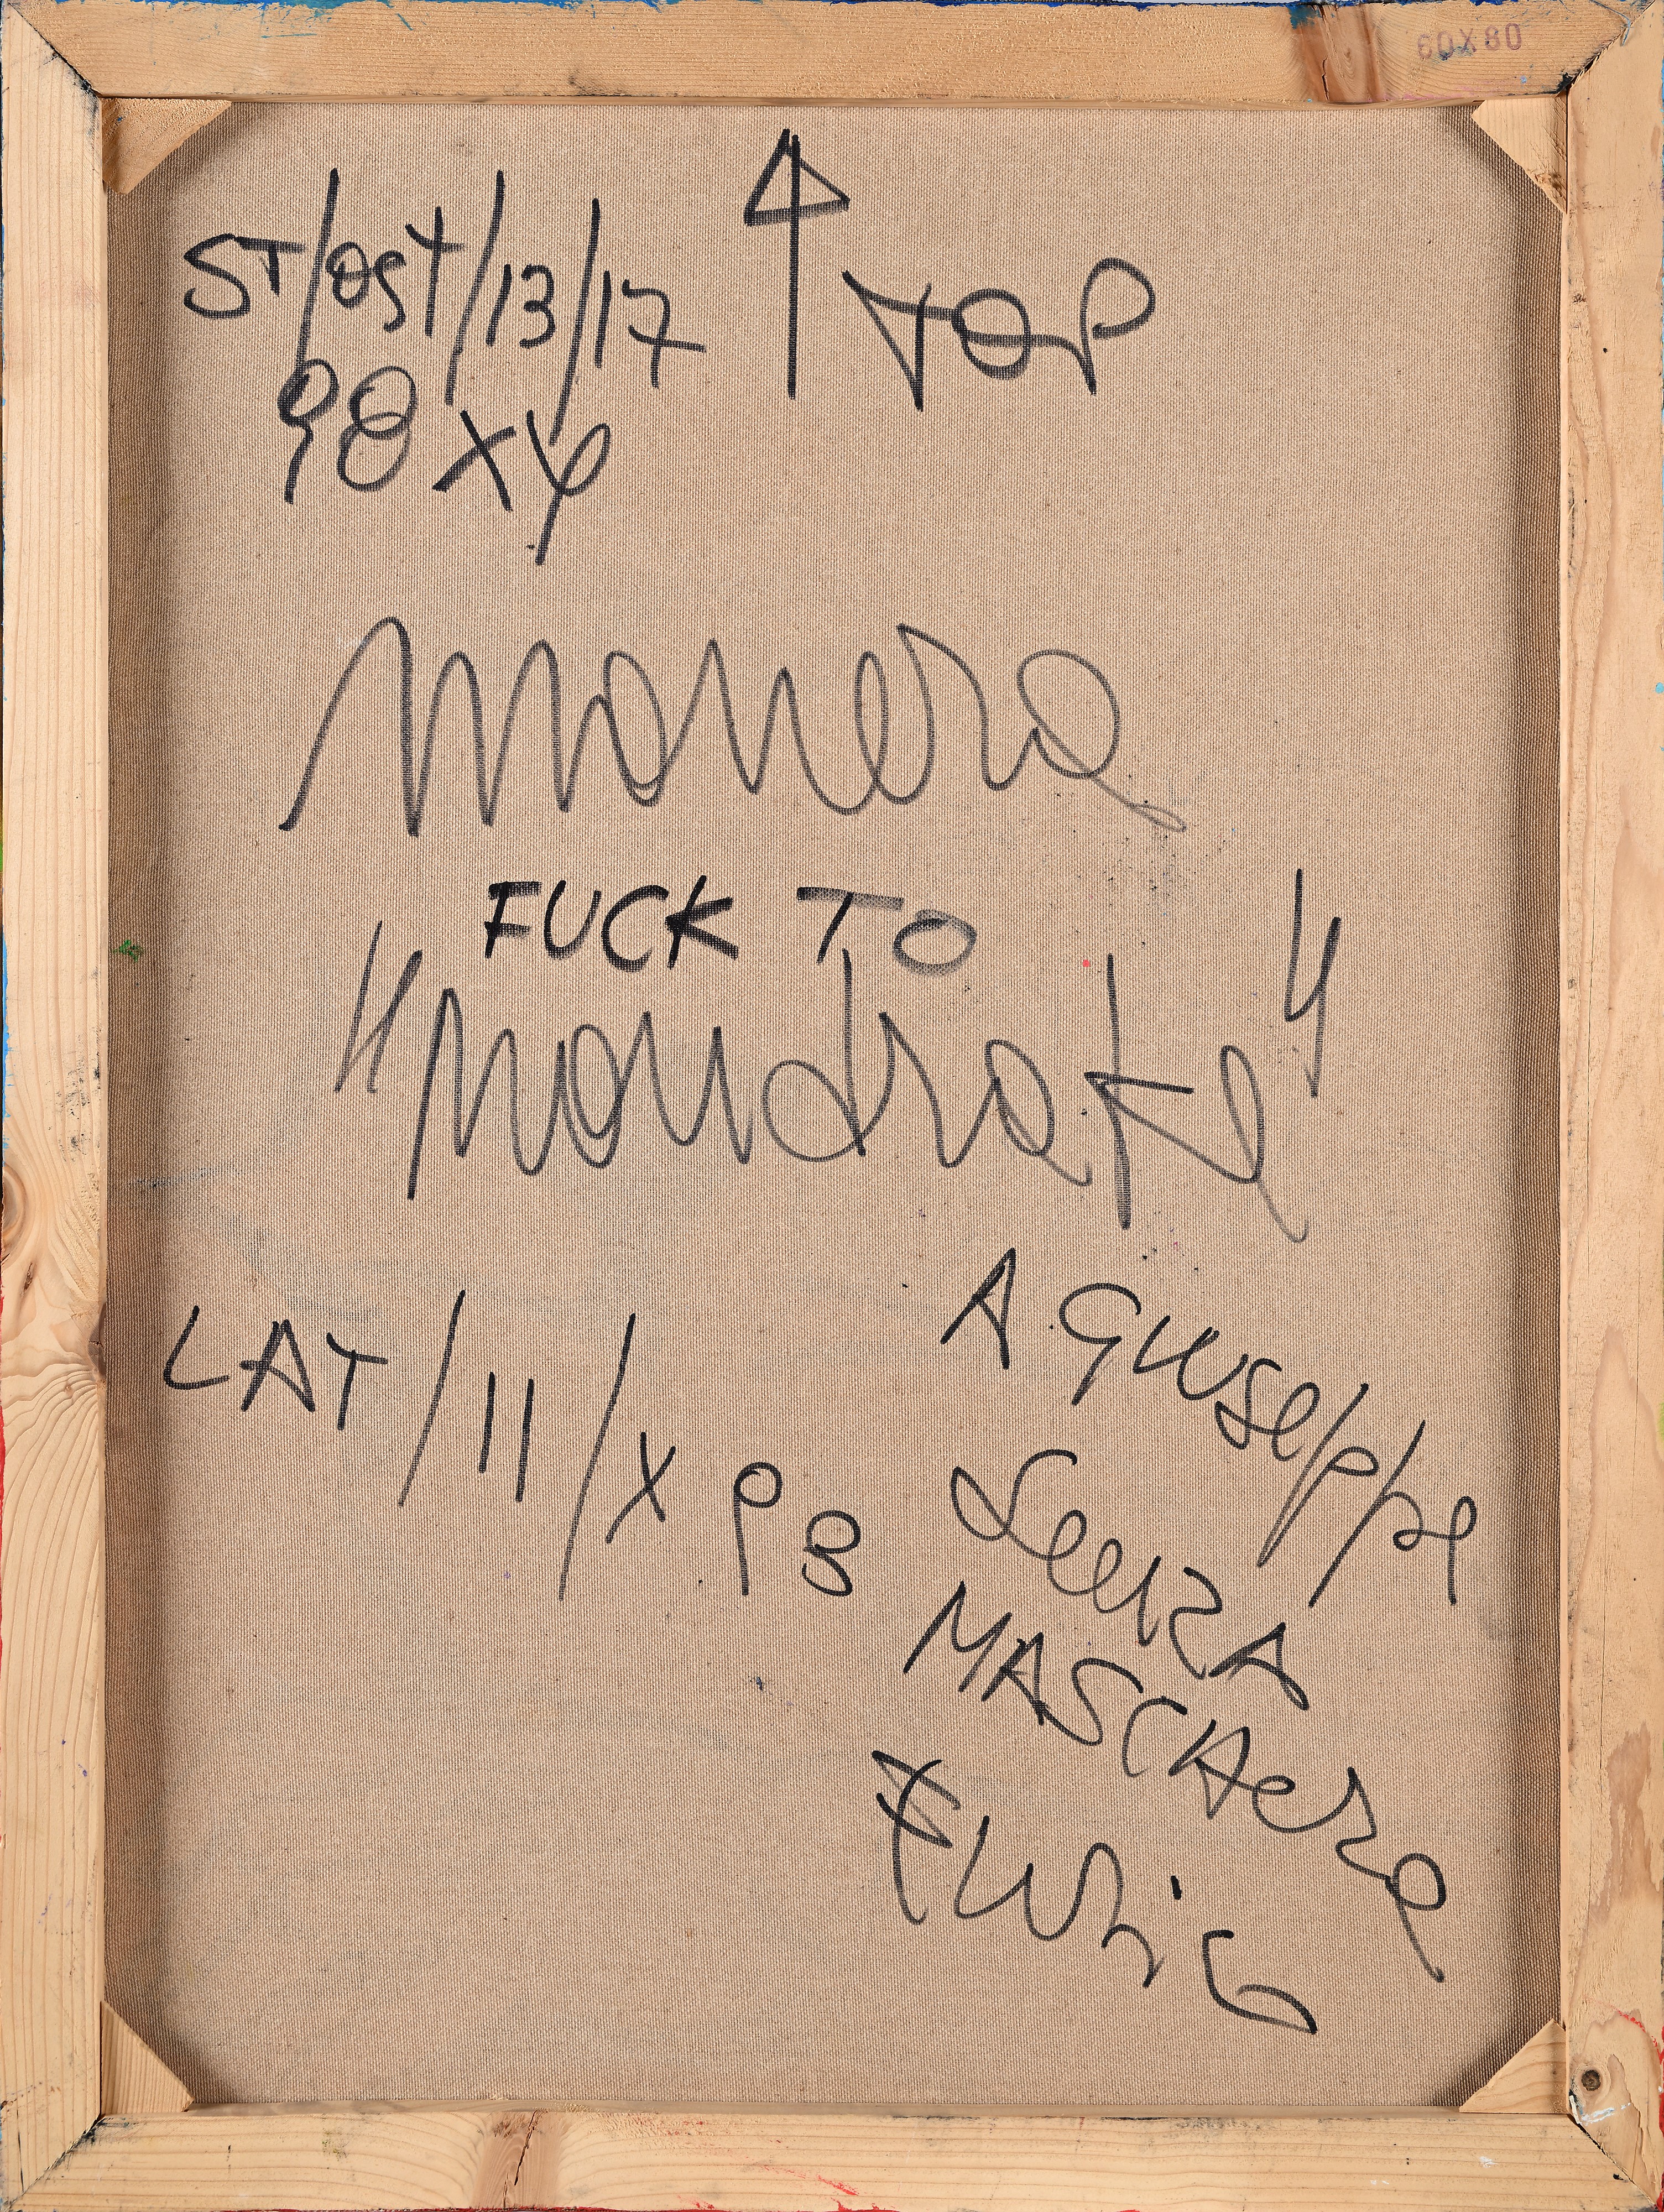 60X80
TOP
ST/OST/13/17
98 X
Manera
FUCK TO
"Mandrake"
LAT/11/X P8
A GIUSEPPE
SENZA
MASCHERE